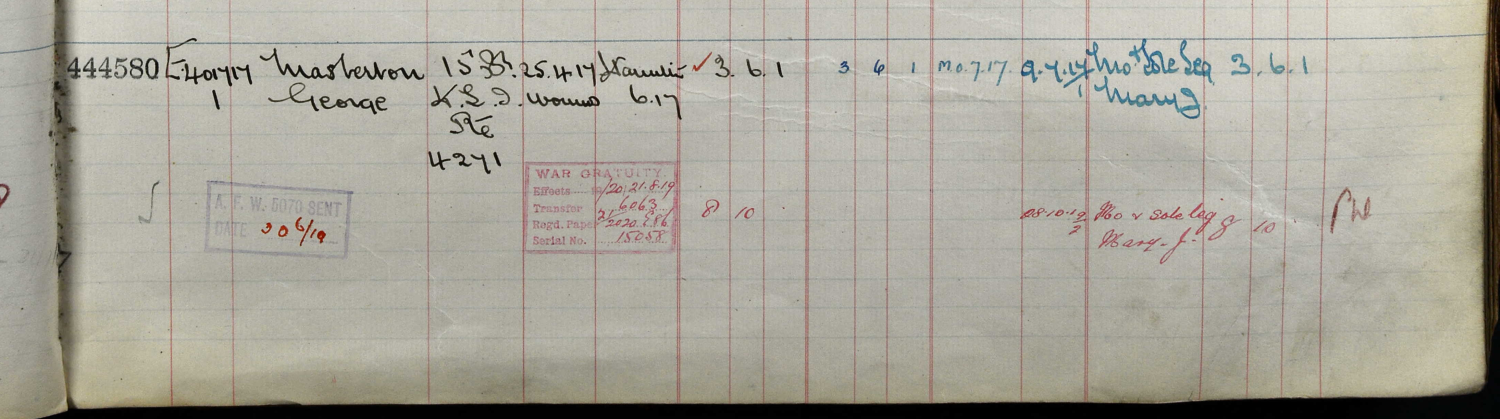 444580 E 401717 Masterton 15 Bn. 25.4.17 Hamilton 3. 6. 1 3 6 1 M.O.7.17. 9.7.17 Mo & Sole Leg 3. 6. 1
1 George K.L.I. wounds 6.17 Mary J.
Pte
4271
WAR GRATUITY.
A. F. W. 5070 SENT Effects 20/21.8.19
Transfer 6063 8 10 Mo & sole leg 8 10
DATE 30 6/19 Regd. Paper Mary J.
Serial No. 15058